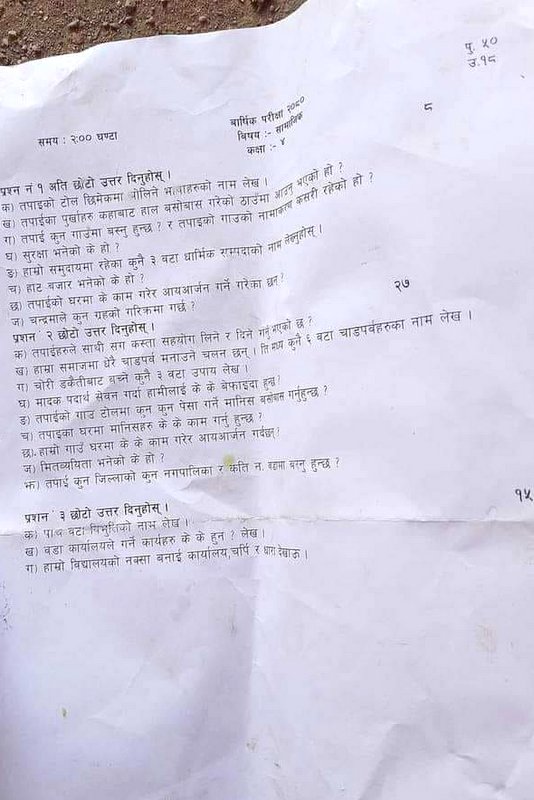 पु. ५०
उ.१८
बार्षिक परीक्षा २०८०
समय : २ः०० घण्टा
बिषय :- सामाजिक
कक्षा :- ४
८
प्रश्न नं १ अति छोटो उत्तर दिनुहोस् ।
क) तपाइको टोल छिमेकमा बोलिने भाषाहरुको नाम लेख ।
ख) तपाईका पुर्खाहरु कहाबाट हाल बसोबास गरेको ठाउँमा आउनु भएको हो ?
ग) तपाई कुन गाउँमा बस्नु हुन्छ ? र तपाइको गाउको नामाकरण कसरी रहेको हो ?
घ) सुरक्षा भनेको के हो ?
ङ) हाम्रो समुदायमा रहेका कुनै ३ वटा धार्मिक सम्पदाको नाम लेख्नुहोस् ।
च) हाट बजार भनेको के हो ?
छ) तपाईको घरमा के काम गरेर आयआर्जन गर्ने गरेका छन् ?
ज) चन्द्रमाले कुन ग्रहको परिक्रमा गर्छ ?
२७
प्रशन २ छोटो उत्तर दिनुहोस् ।
क) तपाईहरुले साथी संग कस्ता सहयोग लिने र दिने गर्नु भएको छ ?
ख) हाम्रा समाजमा धेरै चाडपर्व मनाउने चलन छन् । ति मध्य कुनै ६ वटा चाडपर्वहरुका नाम लेख ।
ग) चोरी डकैतीबाट बच्ने कुनै ३ वटा उपाय लेख ।
घ) मादक पदार्थ सेवन गर्दा हामीलाई के के बेफाइदा हुन्छ ?
ङ) तपाईको गाउ टोलमा कुन कुन पेसा गर्ने मानिस बसोबास गर्नुहुन्छ ?
च) तपाइका घरमा मानिसहरु के के काम गर्नु हुन्छ ?
छ). हाम्रो गाउँ घरमा के के काम गरेर आयआर्जन गर्दछन् ?
ज) मितव्ययिता भनेको के हो ?
झ) तपाई कुन जिल्लाको कुन नगपालिका र कति न. वडामा बस्नु हुन्छ ?
१५
प्रशन ३ छोटो उत्तर दिनुहोस् ।
क) पाच वटा विभुतिको नाम लेख ।
ख) वडा कार्यालयले गर्ने कार्यहरु के के हुन ? लेख ।
ग) हाम्रो विद्यालयको नक्सा बनाई कार्यालय,चर्पि र धारा देखाऊ ।